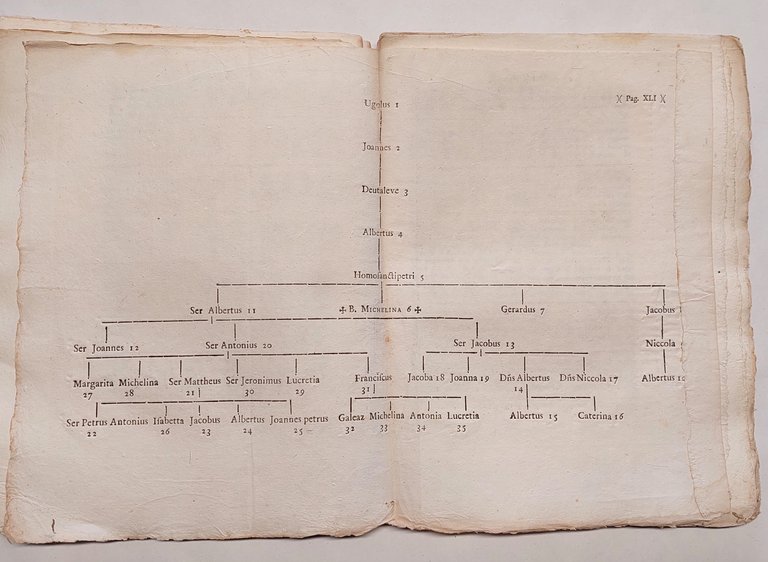 )( Pag. XLI )(
Ugolus 1
Joannes 2
Deutaleve 3
Albertus 4
Homosanctipetri 5
Ser Albertus 11 ✠ B. MICHELINA 6 ✠ Gerardus 7 Jacobus
Ser Joannes 12 Ser Antonius 20 Ser Jacobus 13 Niccola
Margarita Michelina Ser Mattheus Ser Jeronimus Lucretia Franciscus Jacoba 18 Joanna 19 Dñs Albertus Dñs Niccola 17 Albertus 10
27 28 21 30 29 31 14
Ser Petrus Antonius Isabetta Jacobus Albertus Joannes petrus Galeaz Michelina Antonia Lucretia Albertus 15 Caterina 16
22 26 23 24 25 32 33 34 35